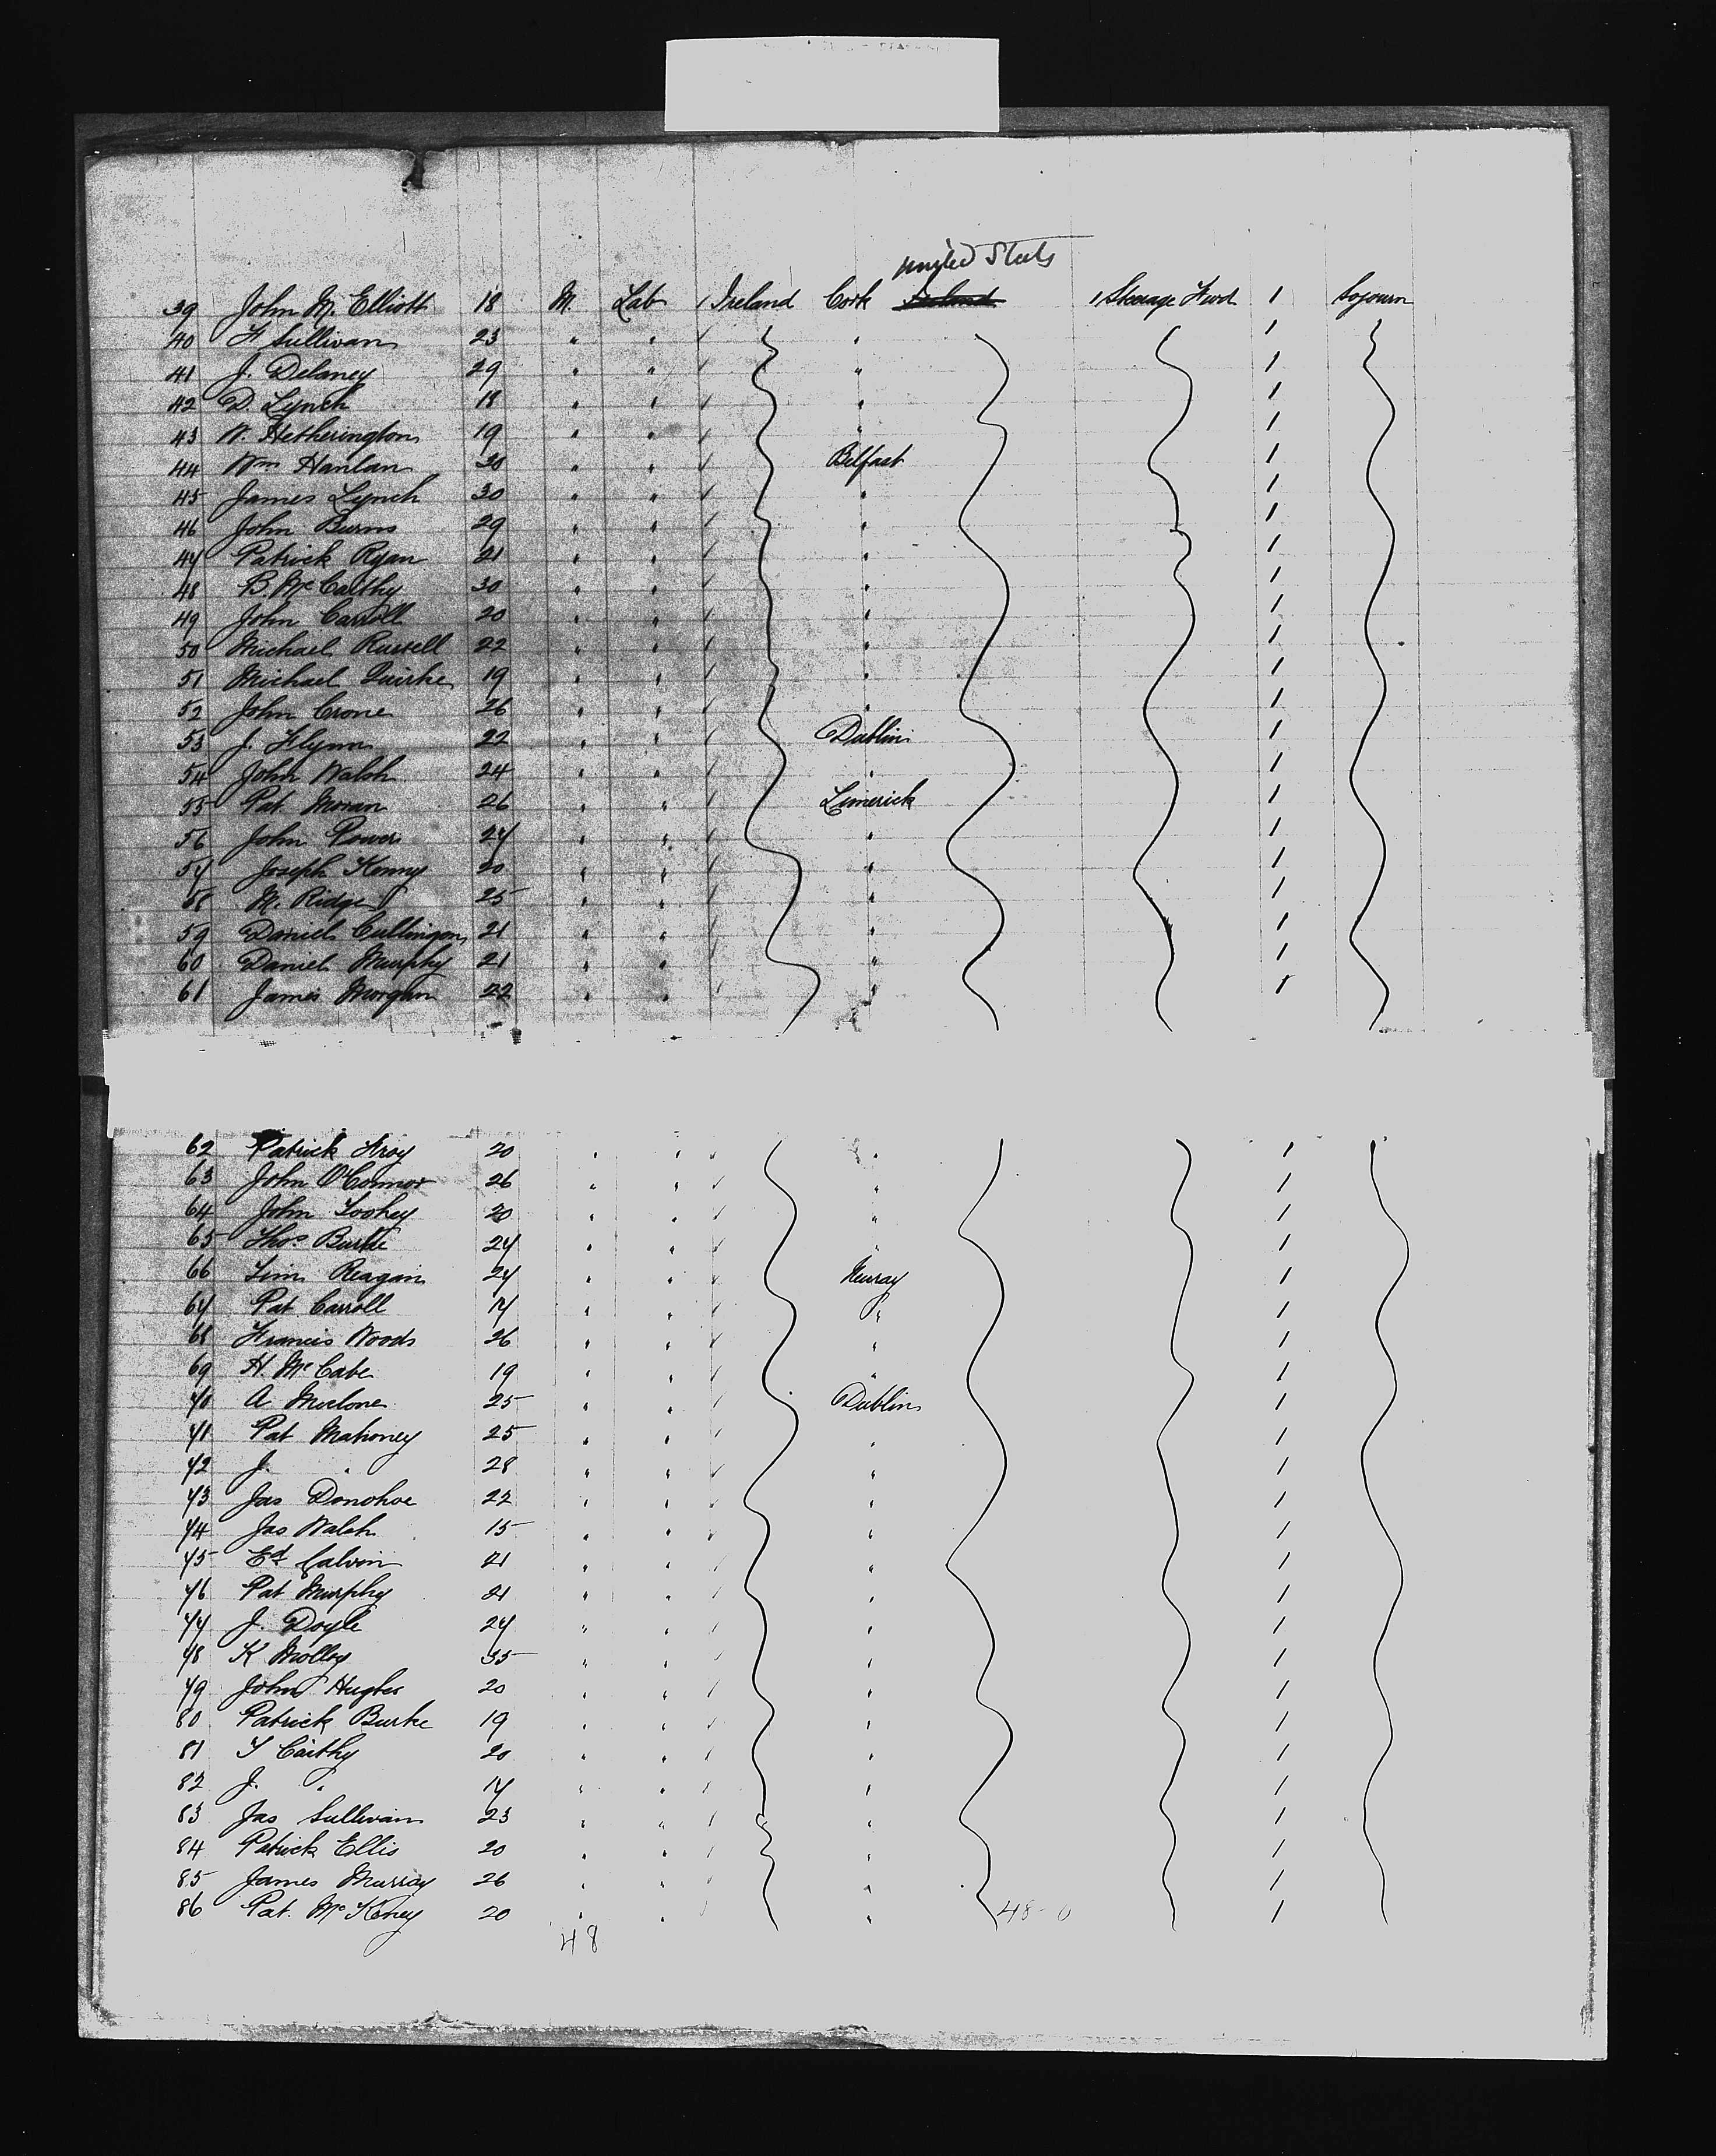 United States
39 John M. Elliott 18 M. Lab / Ireland Cork Ireland / Steerage Fwd 1 Sojourn
40 F Sullivan 23 " " / " /
41 J. Delaney 29 " " / " /
42 D. Lynch 18 " " / " /
43 W. Hetherington 19 " " / " /
44 Wm Hanlan 30 " " / Belfast /
45 James Lynch 30 " " / " /
46 John Burns 29 " " / " /
47 Patrick Ryan 21 " " / " /
48 B. McCarthy 30 " " / " /
49 John Carroll 20 " " / " /
50 Michael Russell 22 " " / " /
51 Michael Quirke 19 " " / " /
52 John Crone 26 " " / " /
53 J. Flynn 22 " " / Dublin /
54 John Walsh 24 " " / " /
55 Pat Moran 26 " " / Limerick /
56 John Power 27 " " / " /
57 Joseph Kenny 20 " " / " /
58 M. Ridge 25 " " / " /
59 Daniel 21 " " / " /
60 Daniel Murphy 21 " " / " /
61 James Morgan 22 " " / " /
62 Patrick 20 " " / " /
63 John O'Connor 26 " " / " /
64 John 20 " " / " /
65 Thos Burke 27 " " / " /
66 Tim Reagan 27 " " / /
67 Pat Carroll 17 " " / " /
68 Francis Woods 26 " " / " /
69 H. McCabe 19 " " / " /
70 A 25 " " / Dublin /
71 Pat Mahoney 25 " " / " /
72 J. " 28 " " / " /
73 Jas Donohoe 22 " " / " /
74 Jas Walsh 15 " " / " /
75 Ed Calvin 21 " " / " /
76 Pat Murphy 21 " " / " /
77 J. Doyle 27 " " / " /
78 K Molloy 35 " " / " /
79 John Hughes 20 " " / " /
80 Patrick Burke 19 " " / " /
81 T Carthy 20 " " / " /
82 J. " 17 " " / " /
83 Jas Sullivan 23 " " / " /
84 Patrick Ellis 20 " " / " /
85 James Murray 26 " " / " /
86 Pat. 20 " " / " 48-0 /
48